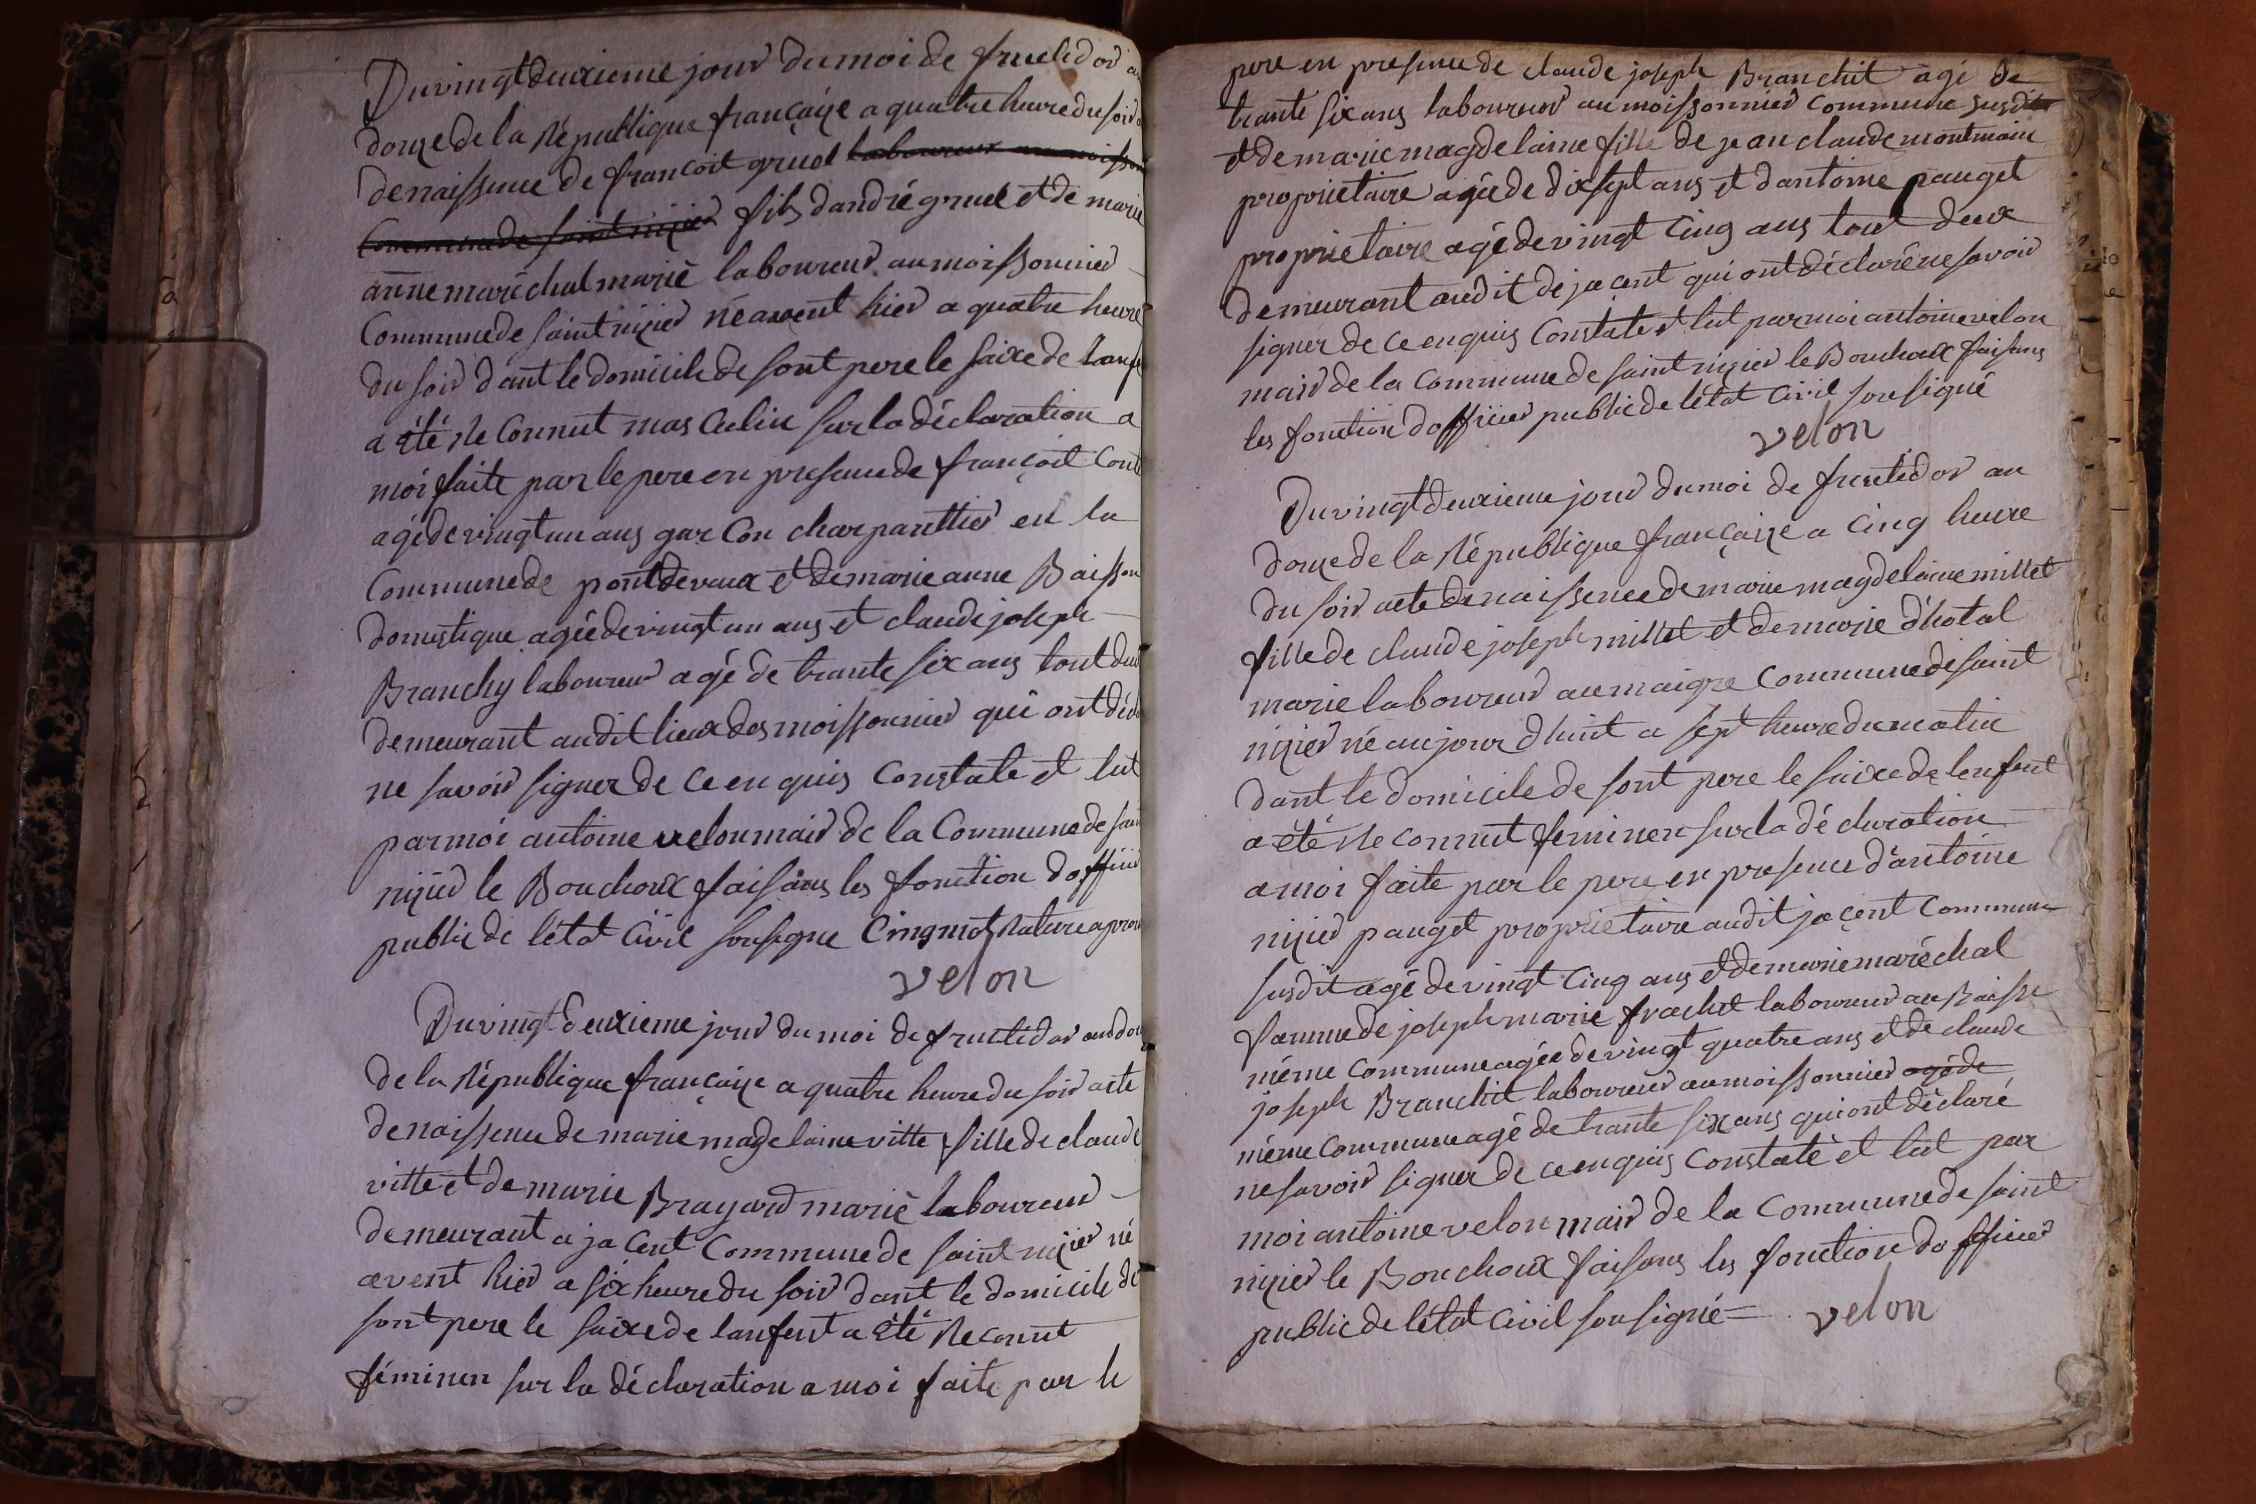 Du vingt deuxieme jour du moi de fructidor an
douze de la République françaize a quatre heure du soir a
de naissence de françoit gruel laboureur au moisson
Commune de saint nizier fils dandré gruel et de marie
anne maréchal marié laboureur au moissonnier
Commune de saint nizier né avent hier a quatre heure
du soir dant le domicile de sont pere le saixe de lanf
a été Reconnut masculin sur la déclaration a
moi faite par le pere en presence de françoit Cont
agé de vingt un ans garcon charpanttier en la
Commune de pontdevaux et de marie anne Baisson
domestique agée de vingt un ans et claude joseph
Branchy laboureur agé de trante six ans tout deux
demeurant audit lieux des moissonnier qui ont décl
ne savoir signer de ce enquis Constate et lut
par moi antoine velon mair de la Commune de sain
nizier le Bouchoux faisans les fonction dofficier
public de létat Civil sousigne Cinq mot Rature aprou
velon
Du vingt deuxieme jour du moi de fructidor an dou
de la République françaize a quatre heure du soir acte
de naissence de marie magdelaine vitte fille de claude
vitte et de marie Brayard marié laboureur
demeurant a jacent Commune de saint nizier né
avent hier a six heure du soir dant le domicile de
sont pere le saixe de lanfent a été Reconnut
féminen sur la déclaration a moi faite par le
pere en presence de claude joseph Branchit agé de
trante six ans laboureur au moissonnier Commune susdit
et de marie magdelaine fille de jean claude montmain
proprietaire agée de dix sept ans et dantoine pauget
proprietaire agé de vingt Cinq ans tout deux
demeurant audit de jacent qui ont déclaré ne savoir
signer de ce enquis Constate et lut par moi antoine velon
mair de la Commune de saint nizier le Bouchoux faisans
les fonction dofficier public de létat Civil sousigné
velon
Du vingt deuxieme jour du moi de fructidor an
douze de la République françaize a Cinq heure
du soir acte de naissence de marie magdelaine millet
fille de claude joseph millet et de marie d'hotal
marie laboureur au maigre Commune de saint
nizier né aujour dhuit a sept heure du matin
dant le domicile de sont pere le saixe de lenfent
a été Reconnut feminen sur la déclaration
a moi faite par le pere en presence d'antoine
nizier pauget proprietaire audit jacent Commune
susdit agé de vingt Cinq ans et de marie maréchal
famme de joseph marie frachet laboureur au Baisse
méme Commune agée de vingt quatre ans et de claude
joseph Branchit laboureur au moissonnier agé de
méme Commune agé de trante six ans qui ont déclaré
ne savoir signer de ce enquis Constaté et lut par
moi antoine velon mair de la Commune de saint
nizier le Bouchoux faisans les fonction dofficier
public de létat Civil sousigné = velon